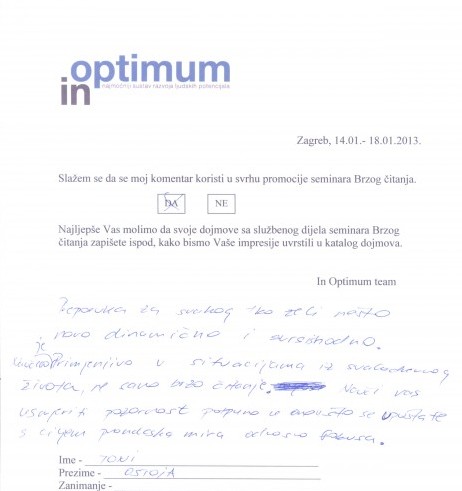 in optimum
najmoćniji sustav razvoja ljudskih potencijala
Zagreb, 14.01.- 18.01.2013.
Slažem se da se moj komentar koristi u svrhu promocije seminara Brzog čitanja.
DA NE
Najljepše Vas molimo da svoje dojmove sa službenog dijela seminara Brzog
čitanja zapišete ispod, kako bismo Vaše impresije uvrstili u katalog dojmova.
In Optimum team
Preporuka za svakog tko želi nešto
novo dinamično i svrsishodno.
je
Primjenjivo u situacijama iz svakodnevnog
života, ne samo brzo čitanje. Nauči vas
usmjeriti pozornost potpuno u ono što se upuštate
s ciljem pronalaska mira odnosno fokusa.
Ime - TONI
Prezime - OSTOJA
Zanimanje -